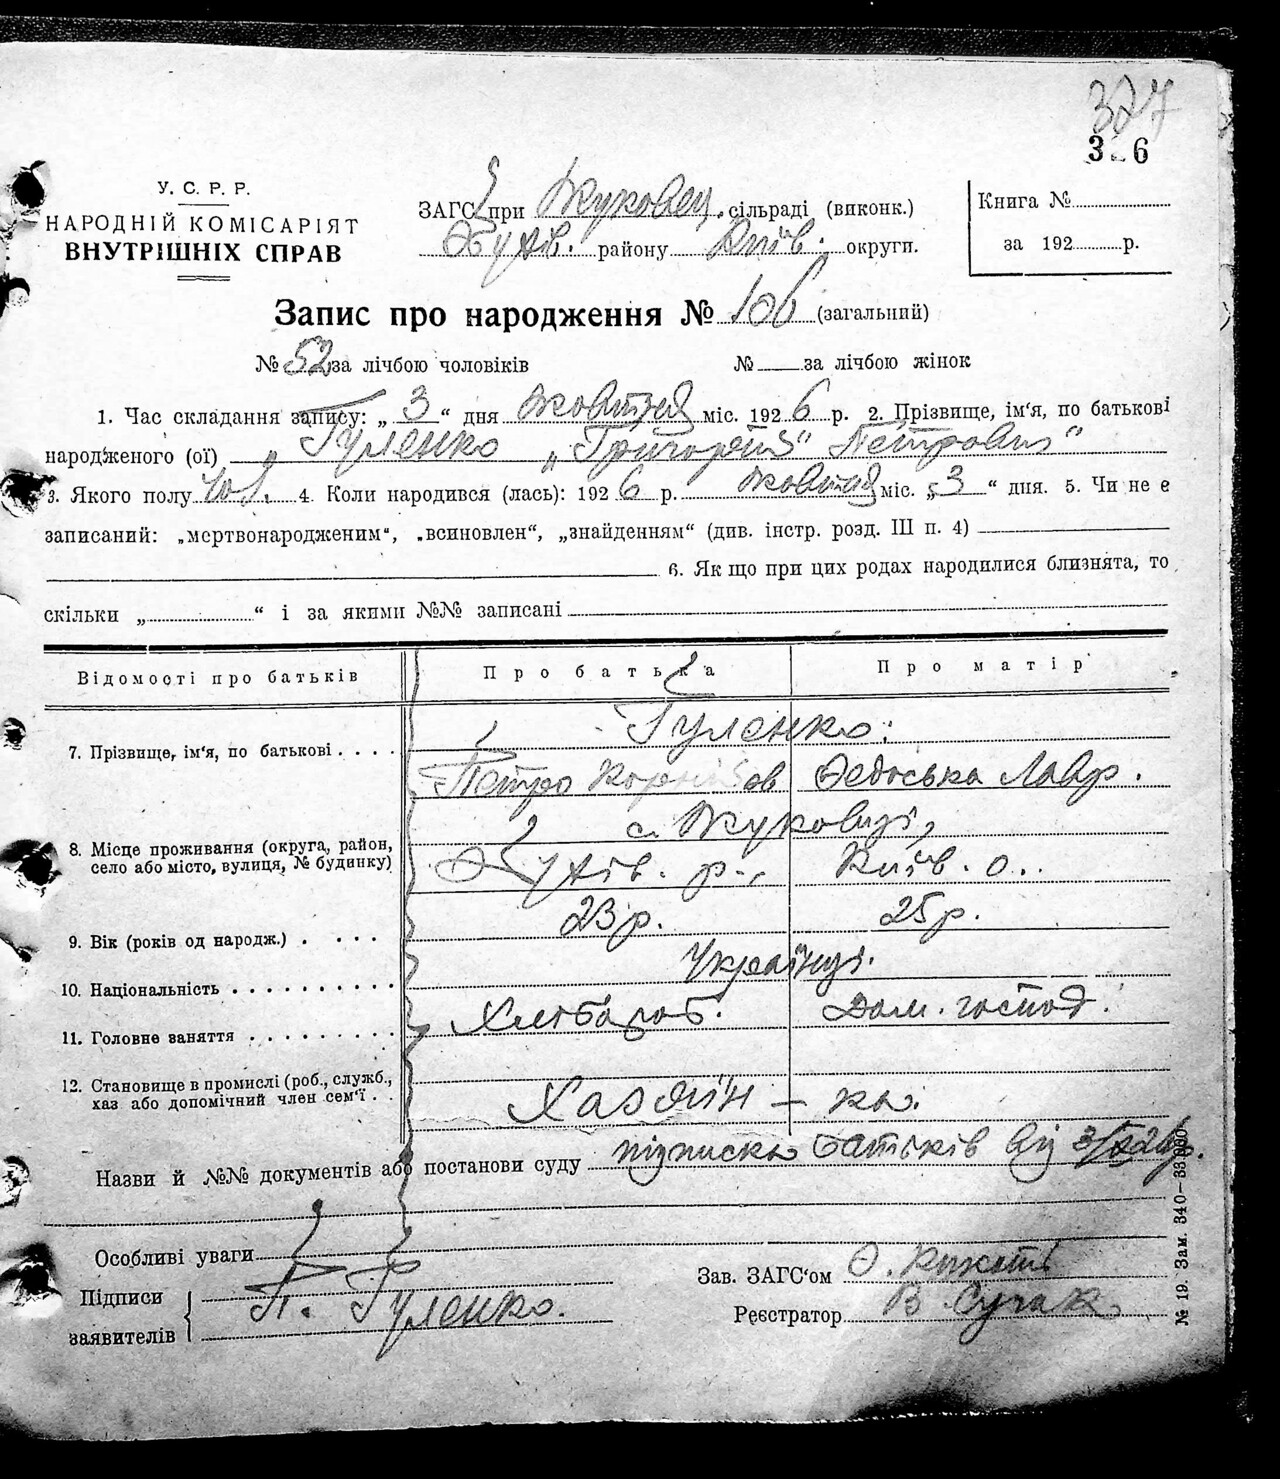 327
326
У. С. Р. Р.
НАРОДНІЙ КОМІСАРІЯТ
ВНУТРІШНІХ СПРАВ
ЗАГС при Жуковец. сільраді (виконк.)
Обухів. району Київ. округи.
Книга №
за 192 р.
Запис про народження № 106 (загальний)
№ 52 за лічбою чоловіків № за лічбою жінок
1. Час складання запису: „ 3 “ дня жовтня міс. 192 6 р. 2. Прізвище, ім'я, по батькові
народженого (ої) Гуленко „Григорій“ Петрович
3. Якого полу чол. 4. Коли народився (лась): 192 6 р. жовтня міс. „ 3 “ дня. 5. Чи не є
записаний: „мертвонародженим“, „всиновлен“, „знайденням“ (див. інстр. розд. III п. 4)
6. Якщо при цих родах народилися близнята, то
скільки „ “ і за якими №№ записані
Відомості про батьків Про батька Про матір
Гуленко:
7. Прізвище, ім'я, по батькові . . . . Петро Федоська Лавр.
с. Жуковці,
8. Місце проживання (округа, район,
село або місто, вулиця, № будинку) Обухів. р., Київ. о..
9. Вік (років од народж.) . . . . 23 р. 25 р.
Українці.
10. Національність . . . . . . . . . .
11. Головне заняття . . . . . . . . Хлібороб. Дом. господ.
12. Становище в промислі (роб., служб.,
хаз або допомічний член сем'ї . . Хазяїн – ка.
Назви й №№ документів або постанови суду підписка батьків від 3/X 26 р.
Особливі уваги
Підписи
заявителів П. Гуленко.
Зав. ЗАГС'ом
Реєстратор В. Сучак
№ 19. Зам. 340—33000